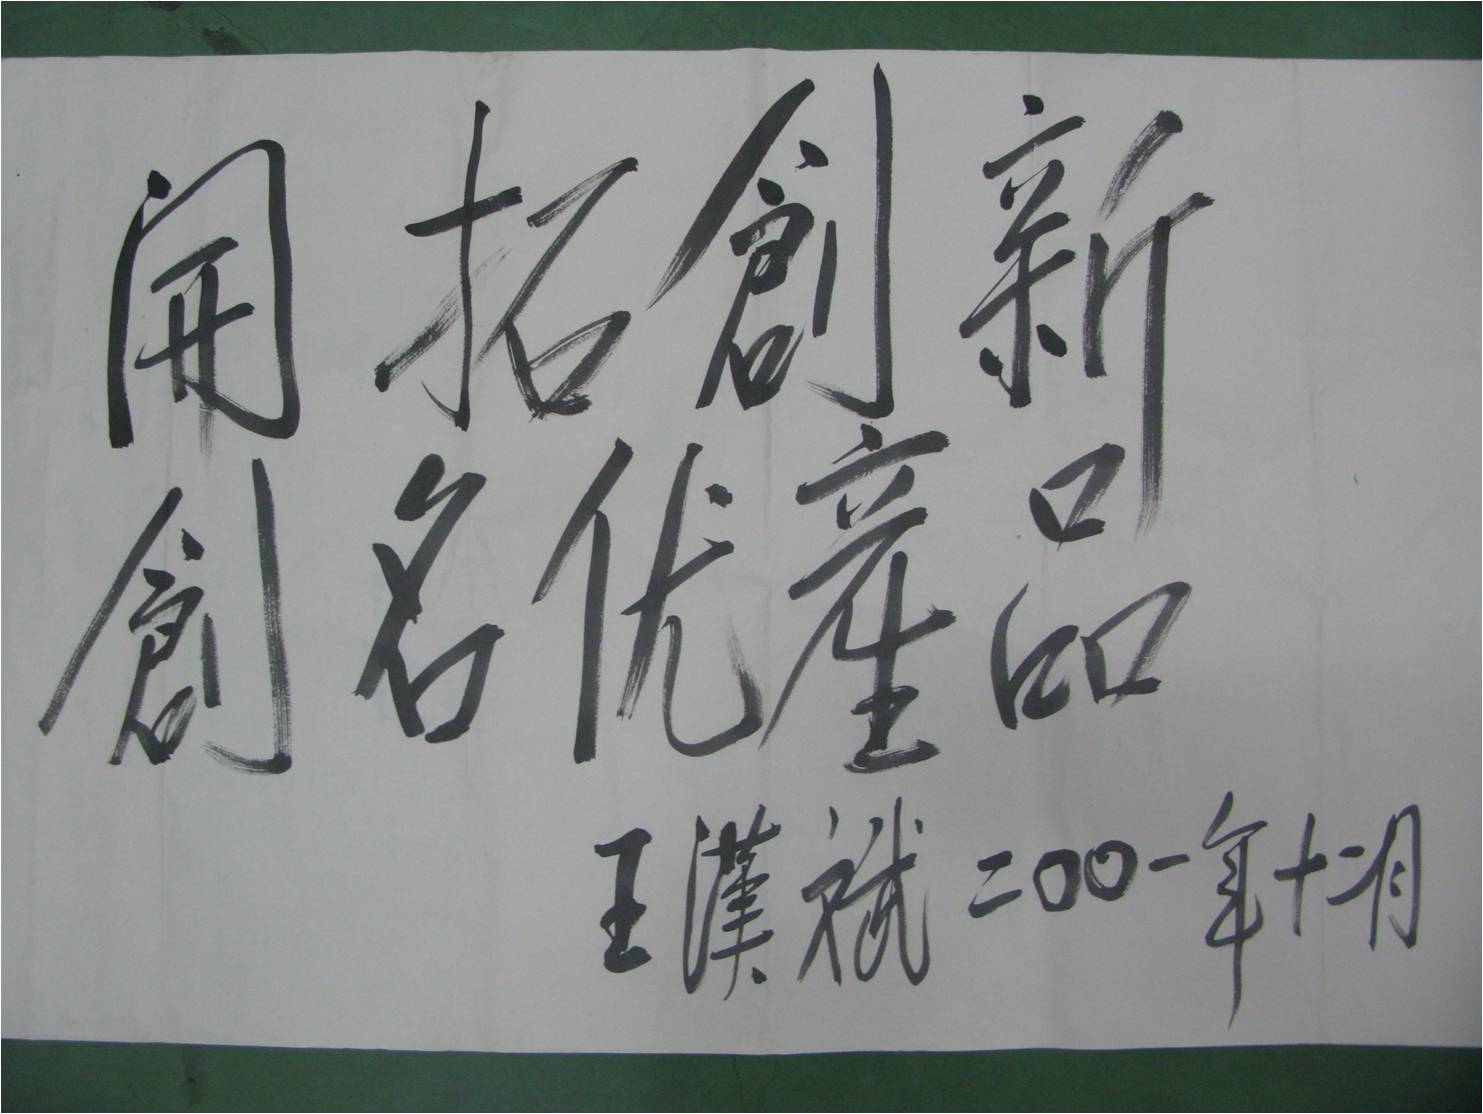 開拓創新
創名优產品
王漢斌二〇〇一年十二月